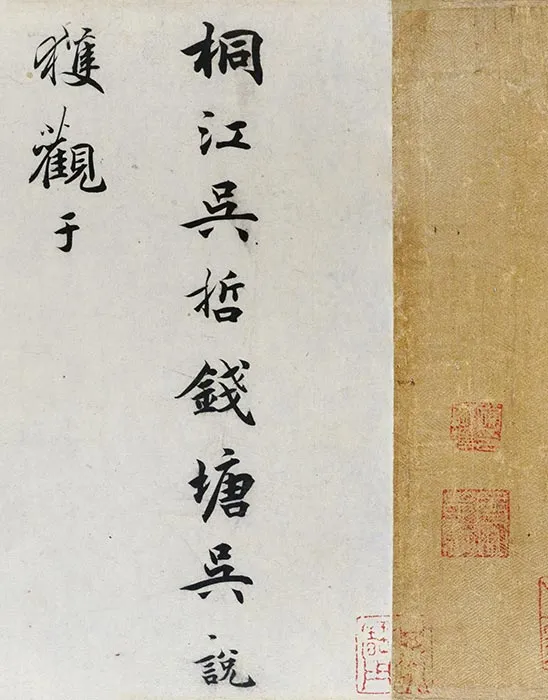 桐江吳哲錢塘吳說
獲觀于